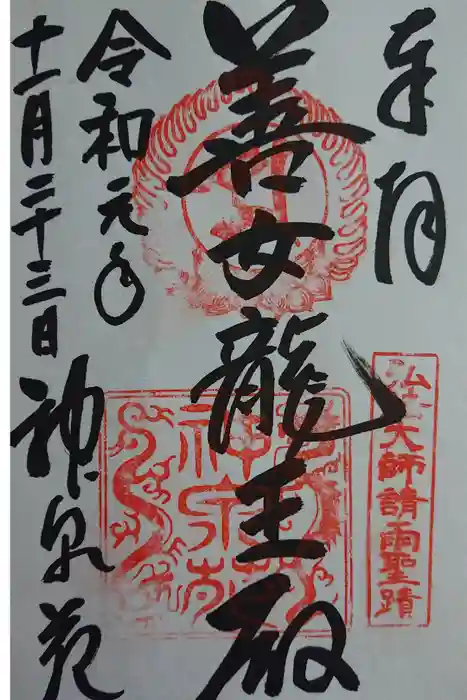 奉拝
弘法大師請雨聖蹟
善女龍王殿
神泉苑
令和元年
十一月二十三日
神泉苑